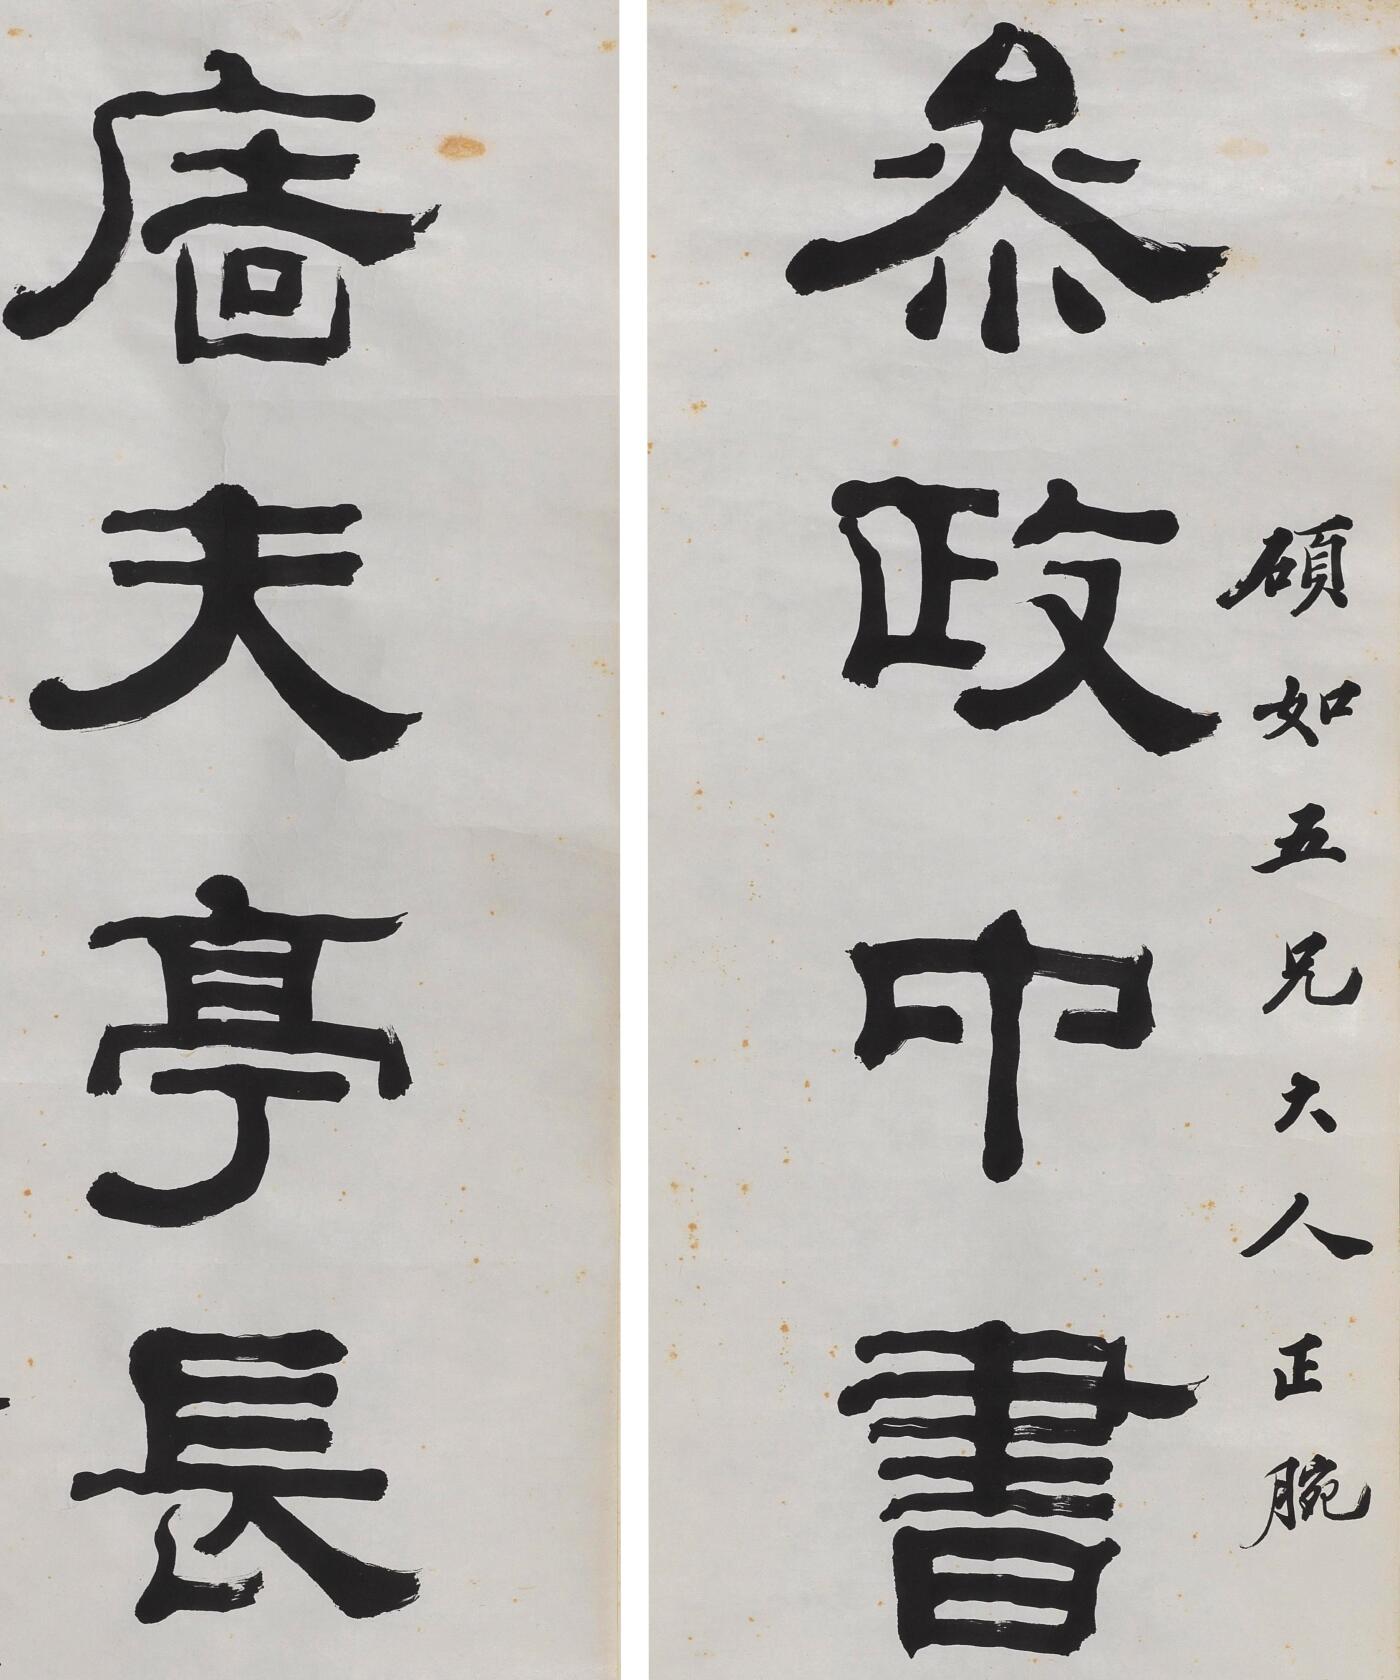 碩如五兄大人正腕
叅政中書
廧夫亭長